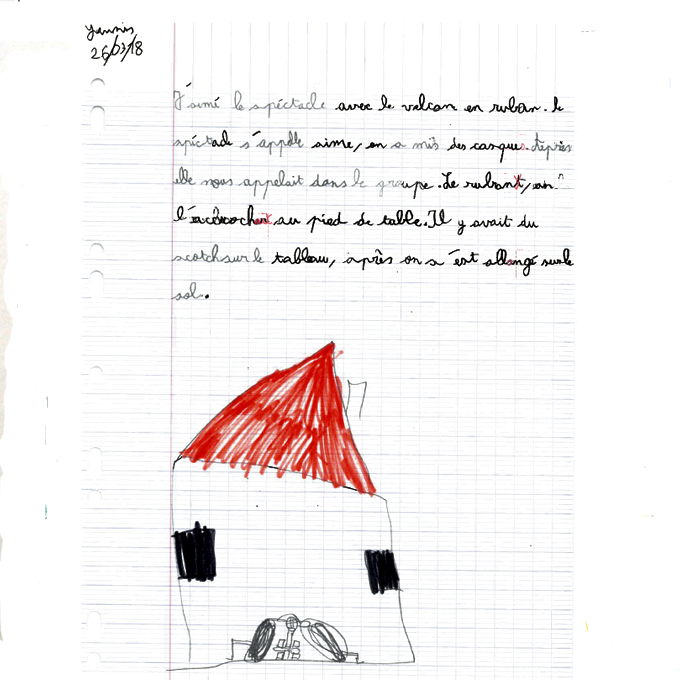 yannis
26/03/18
J'aimé le spéctacle avec le volcan en ruban. le
spéctacle s'appelle aime, on a mis des casques. Daprès
elle nous appelait dans le groupe. Le ruban, on
l'accrocher au pied de table. Il y avait du
scotch sur le tableau, après on a ést allongé sur le
sol.